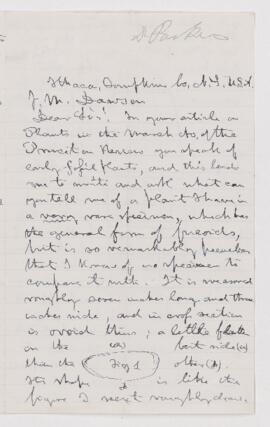 Dr Parker
Ithaca, Tompkins Co, N.Y. U.S.A.
J. W. Dawson
Dear Sir: In your article on
Plants in the March No. of the
Princeton Review you speak of
early Fossil Plants, and this leads
me to write and ask what can
you tell me of a plant I have in
a very rare specimen, which has
the general form of fucoids,
but is so remarkably peculiar
that I know of no specimen to
compare it with. It is measured
roughly seven inches long and three
inches wide, and in cross section
is ovoid thus; a little flatter
on the (a) one side (a)
than the Fig 1 other (b).
Its shape b is like the
figure I most roughly draw